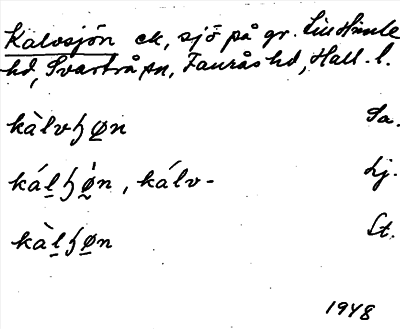 Kalvsjön ek, sjö på gr. till Himle
hd, Svartrå sn, Faurås hd, Hall. l.
kàlvɧøn Sa.
kálɧø̀n, kálv- Lj.
kàlɧøn St.
1948